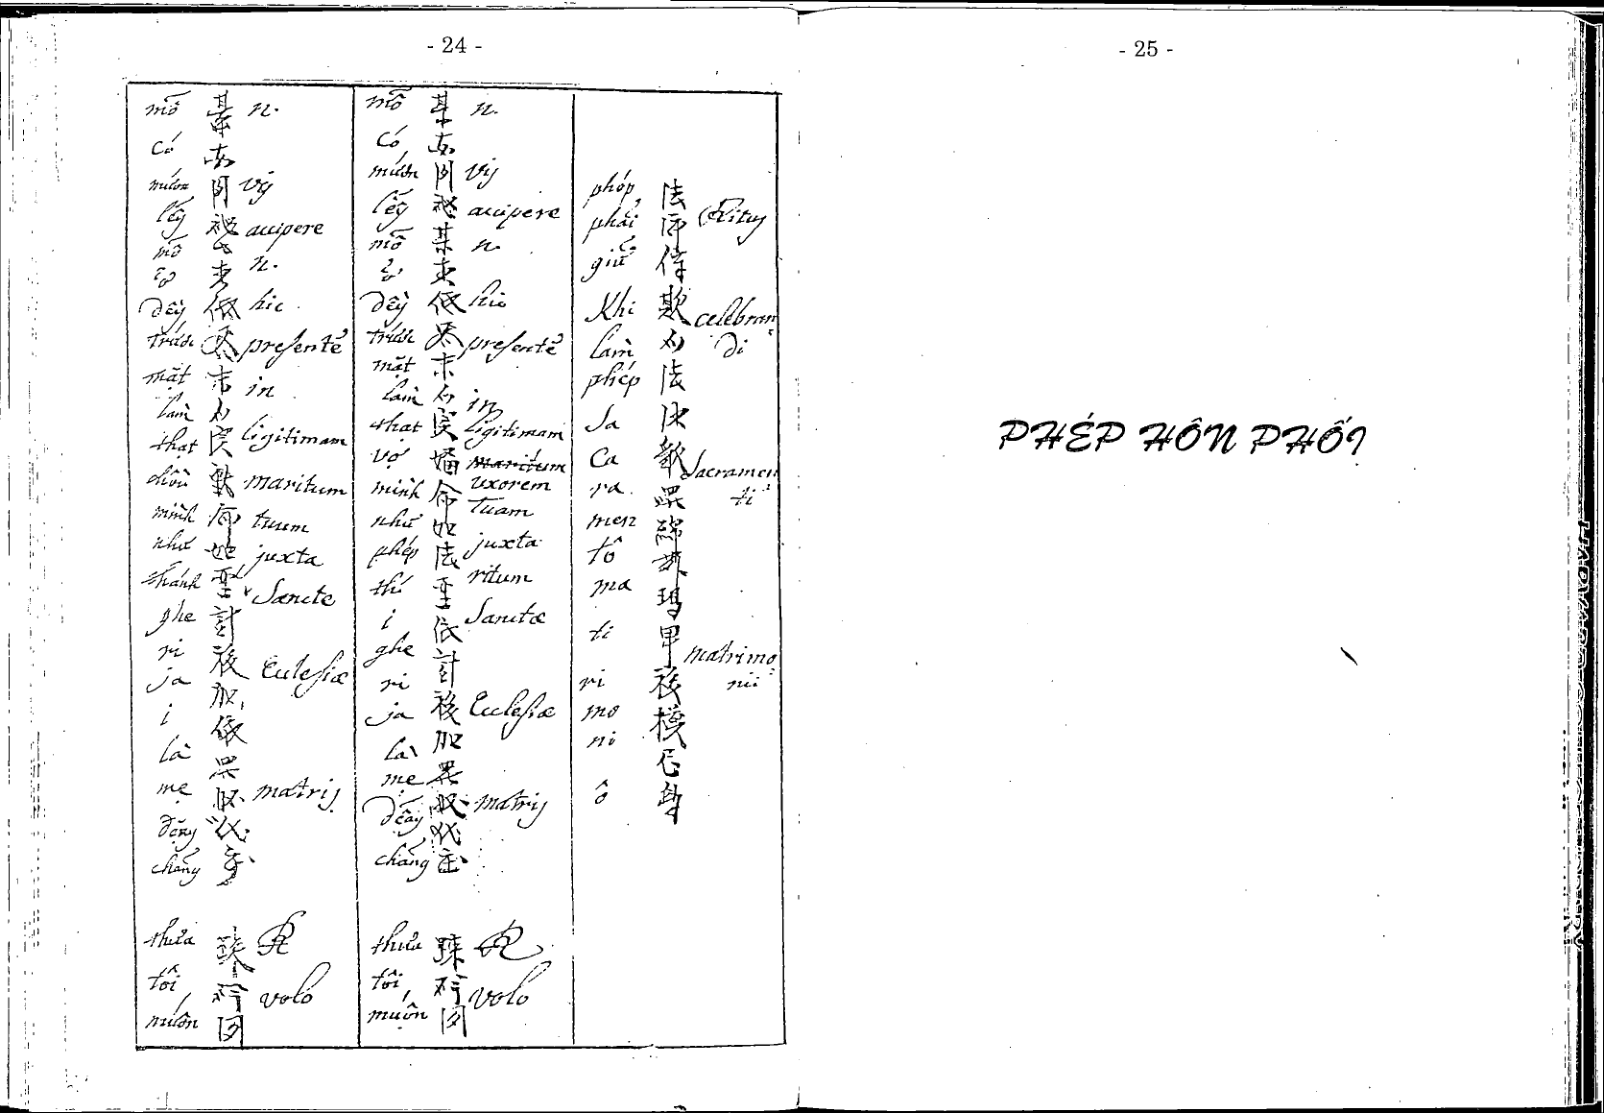 - 24 -
mỗ 某 n.
có 固
muốn 悶 vis
lấy 祕 accipere
mỗ 某 n.
ở 於
đêÿ 低 hic
trước presente
mặt 末
làm in
that 實 legitimam
chồng maritum
mình 命 tuum
như 如 juxta
thánh 聖 Sanctæ
ghe 計
ri 移
ja 加 Ecclesiæ
i 依
là 羅
mẹ matris
đếny
chăng
thưa ℟
tôi 碎 volo
muốn 悶
mỗ 某 n.
có 固
muốn 悶 vis
lấy 祕 accipere
mỗ 某 n.
ở 於
đêÿ 低 hic
trước presente
mặt 末
làm in
that 實 legitimam
vợ maritum
uxorem
mình 命 tuam
như 如 juxta
phép 法 ritum
thí 聖 Sanctæ
i 依
ghe 計
ri 移
ja 加 Ecclesiæ
là 羅
mẹ matris
đếny
chăng
thưa ℟
tôi 碎 volo
muốn 悶
phép 法
phải 沛 Ritus
giữ
Khi 欺 celebran
làm di
phép 法
Sa
Ca 歌 Sacramen
ra ti
men
tô 蘇
ma 瑪
ti
ri 移 matrimo
mo 模 nii
ni 尼
ô
- 25 -
PHÉP HÔN PHỐI